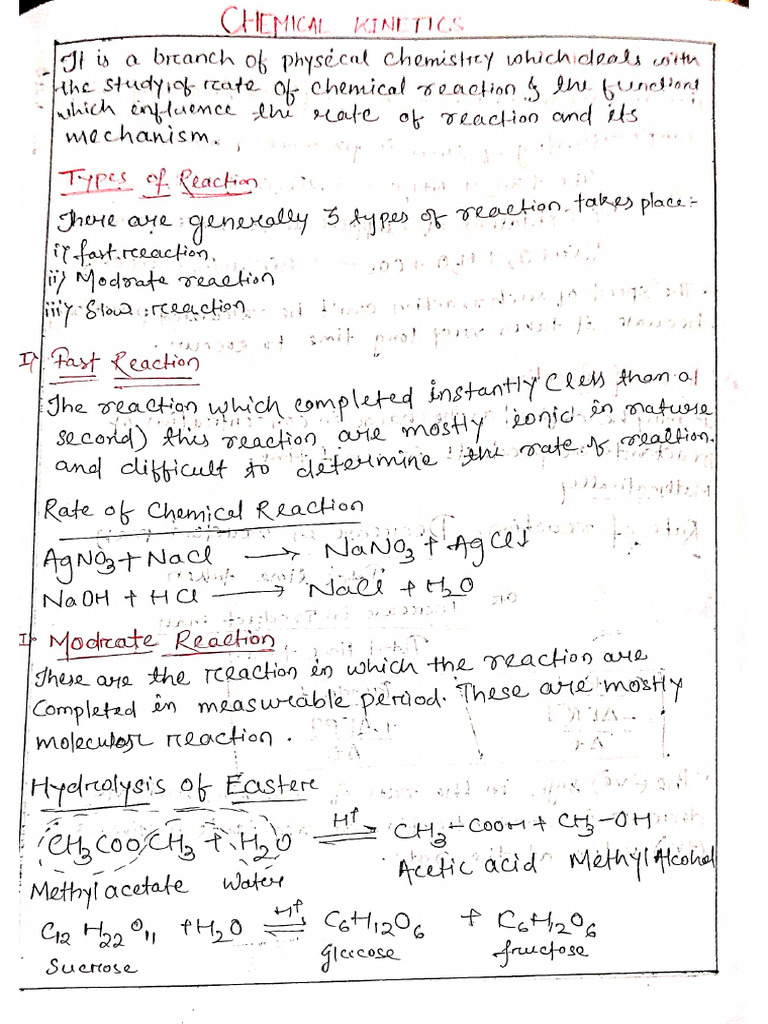 CHEMICAL KINETICS
It is a branch of physical chemistry which deals with
the study of rate of chemical reaction & the functions
which influence the rate of reaction and its
mechanism.
Types of Reaction
There are generally 3 types of reaction takes place:-
i) fast reaction.
ii) Modrate reaction
iii) Slow reaction
I) Fast Reaction
The reaction which completed instantly (less than a
second) this reaction are mostly ionic in nature
and difficult to determine the rate of reaction.
Rate of Chemical Reaction
AgNO3 + NaCl → NaNO3 + AgCl↓
NaOH + HCl → NaCl + H2O
I- Modrate Reaction
These are the reaction in which the reaction are
completed in measurable period. These are mostly
molecular reaction.
Hydrolysis of Eastere
CH3COOCH3 + H2O ⇌ H+ CH3-COOH + CH3-OH
Methyl acetate Water Acetic acid Methyl Alcohol
C12H22O11 + H2O ⇌ H+ C6H12O6 + C6H12O6
Sucrose glucose fructose